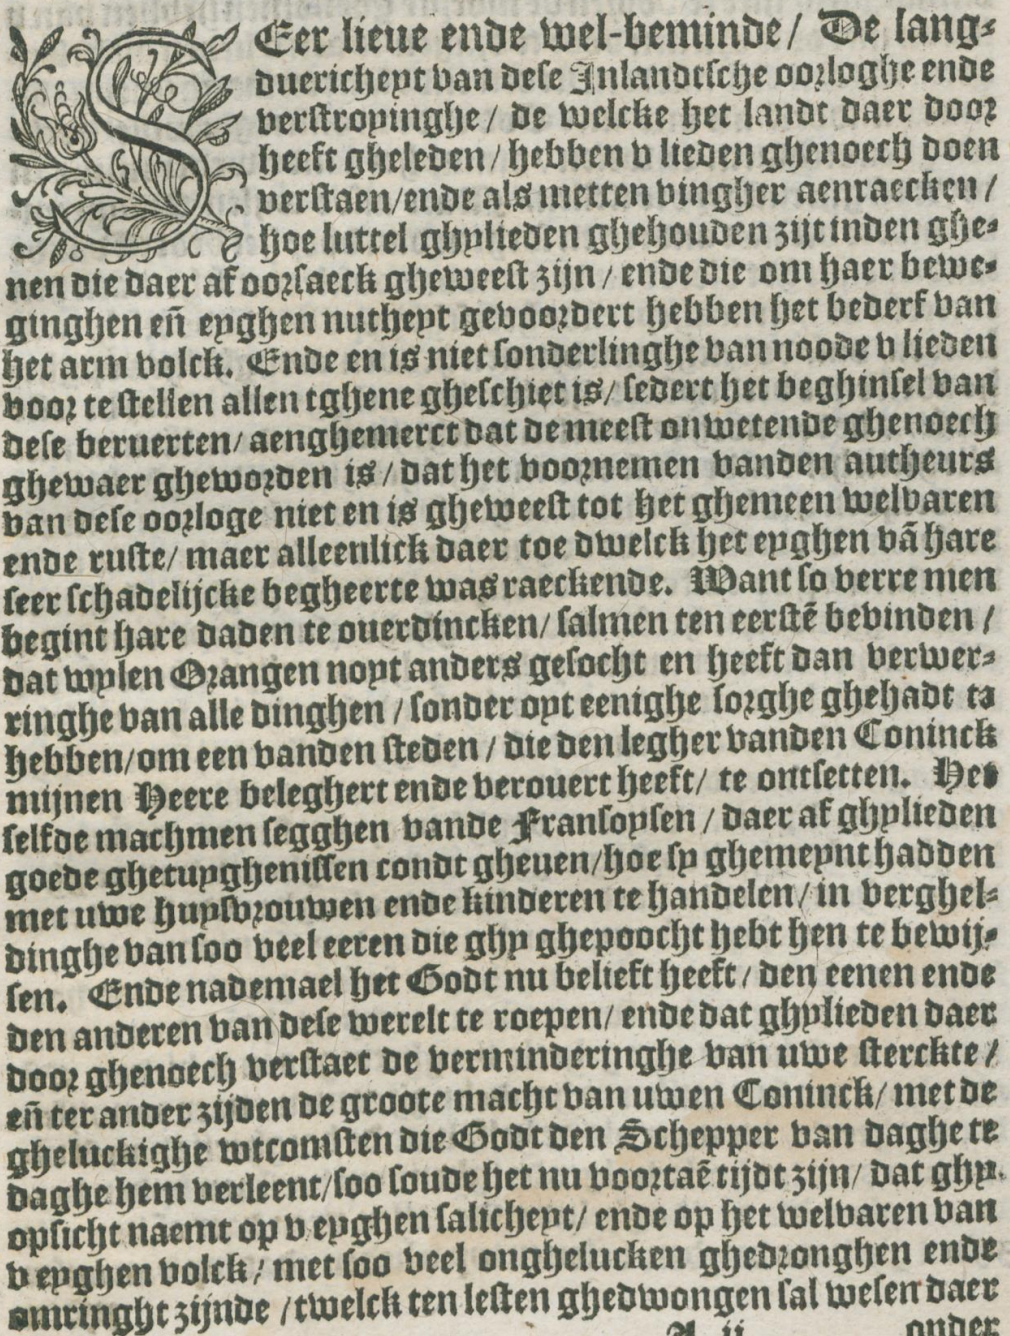 SEer lieue ende wel-beminde/ De lang-
duericheyt van dese Inlandtsche oorloghe ende
verstroyinghe/ de welcke het landt daer door
heeft gheleden/hebben v lieden ghenoech doen
verstaen/ende als metten vingher aenraecken/
hoe luttel ghylieden ghehouden zijt inden ghe-
nen die daer af oorsaeck gheweest zijn/ende die om haer bewe-
ginghen eñ eyghen nutheyt gevoordert hebben het bederf van
het arm volck. Ende en is niet sonderlinghe van noode v lieden
voor te stellen allen tghene gheschiet is/ sedert het beghinsel van
dese beruerten/ aenghemerct dat de meest onwetende ghenoech
ghewaer gheworden is/ dat het voornemen vanden autheurs
van dese oorloge niet en is gheweest tot het ghemeen welvaren
ende ruste/ maer alleenlick daer toe dwelck het eyghen vã hare
seer schadelijcke begheerte was raeckende. Want so verre men
begint hare daden te ouerdincken/ salmen ten eerstẽ bevinden/
dat wylen Orangen noyt anders gesocht en heeft dan verwer-
ringhe van alle dinghen/ sonder oyt eenighe sorghe ghehadt ta
hebben/om een vanden steden/ die den legher vanden Coninck
mijnen Heere beleghert ende verouert heeft/ te ontsetten. Het
selfde machmen segghen vande Fransoysen/ daer af ghylieden
goede ghetuyghenissen condt gheuen/hoe sy ghemeynt hadden
met uwe huysvrouwen ende kinderen te handelen/ in verghel-
dinghe van soo veel eeren die ghy ghepoocht hebt hen te bewij-
sen. Ende nademael het Godt nu belieft heeft/ den eenen ende
den anderen van dese werelt te roepen/ ende dat ghylieden daer
door ghenoech verstaet de verminderinghe van uwe sterckte/
eñ ter ander zijden de groote macht van uwen Coninck/ met de
gheluckighe wtcomsten die Godt den Schepper van daghe te
daghe hem verleent/soo soude het nu voortaẽ tijdt zijn/ dat ghy
opsicht naemt op v eyghen salicheyt/ ende op het welvaren van
v eyghen volck/ met soo veel onghelucken ghedronghen ende
omringht zijnde/twelck ten lesten ghedwongen sal wesen daer
A ij onder